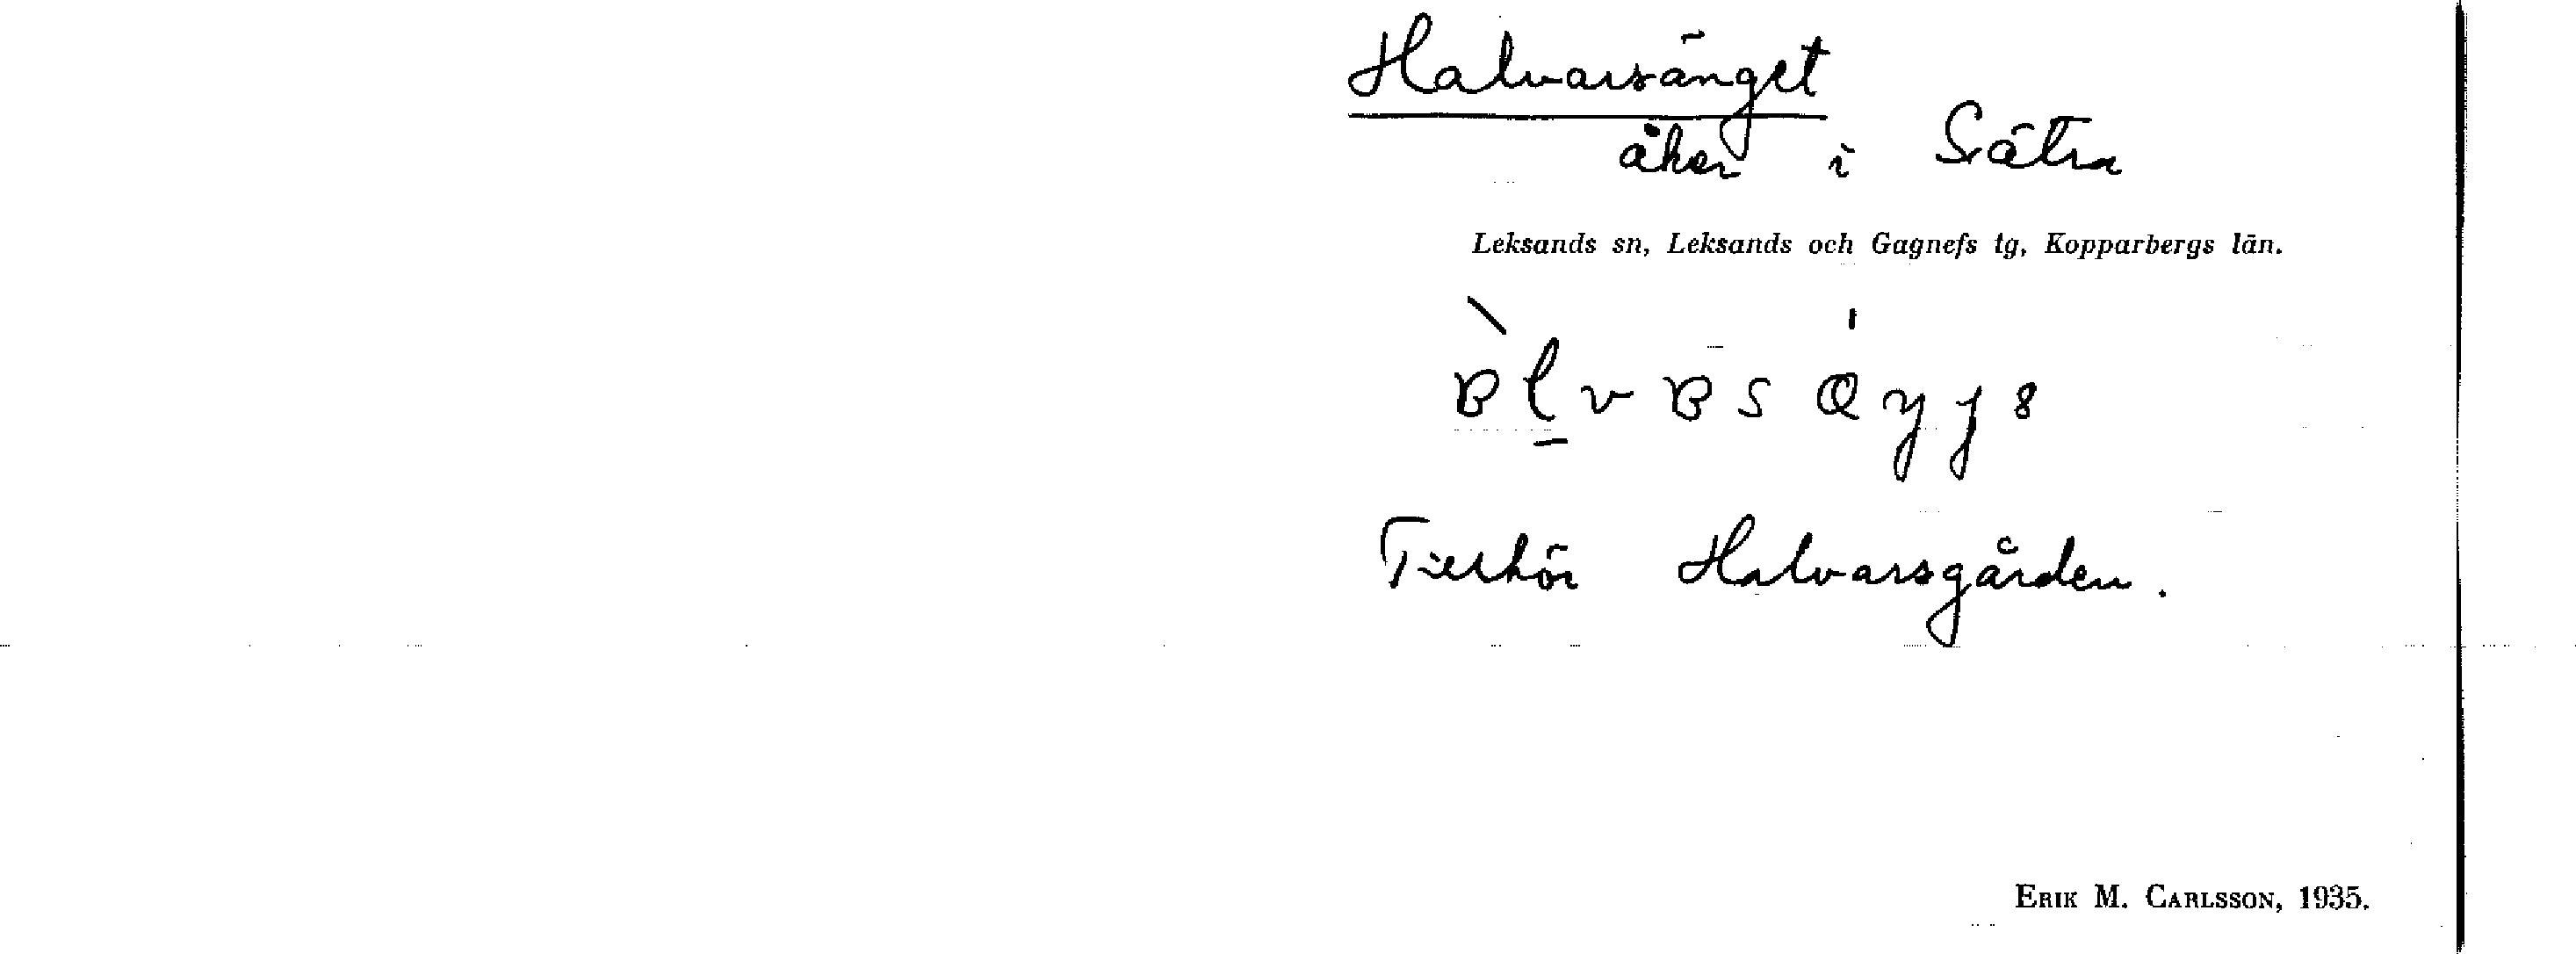 Halvarsänget
åker i Sätra
Leksands sn, Leksands och Gagnefs tg, Kopparbergs län.
Tillhör Halvarsgården.
ERIK M. CARLSSON, 1935.